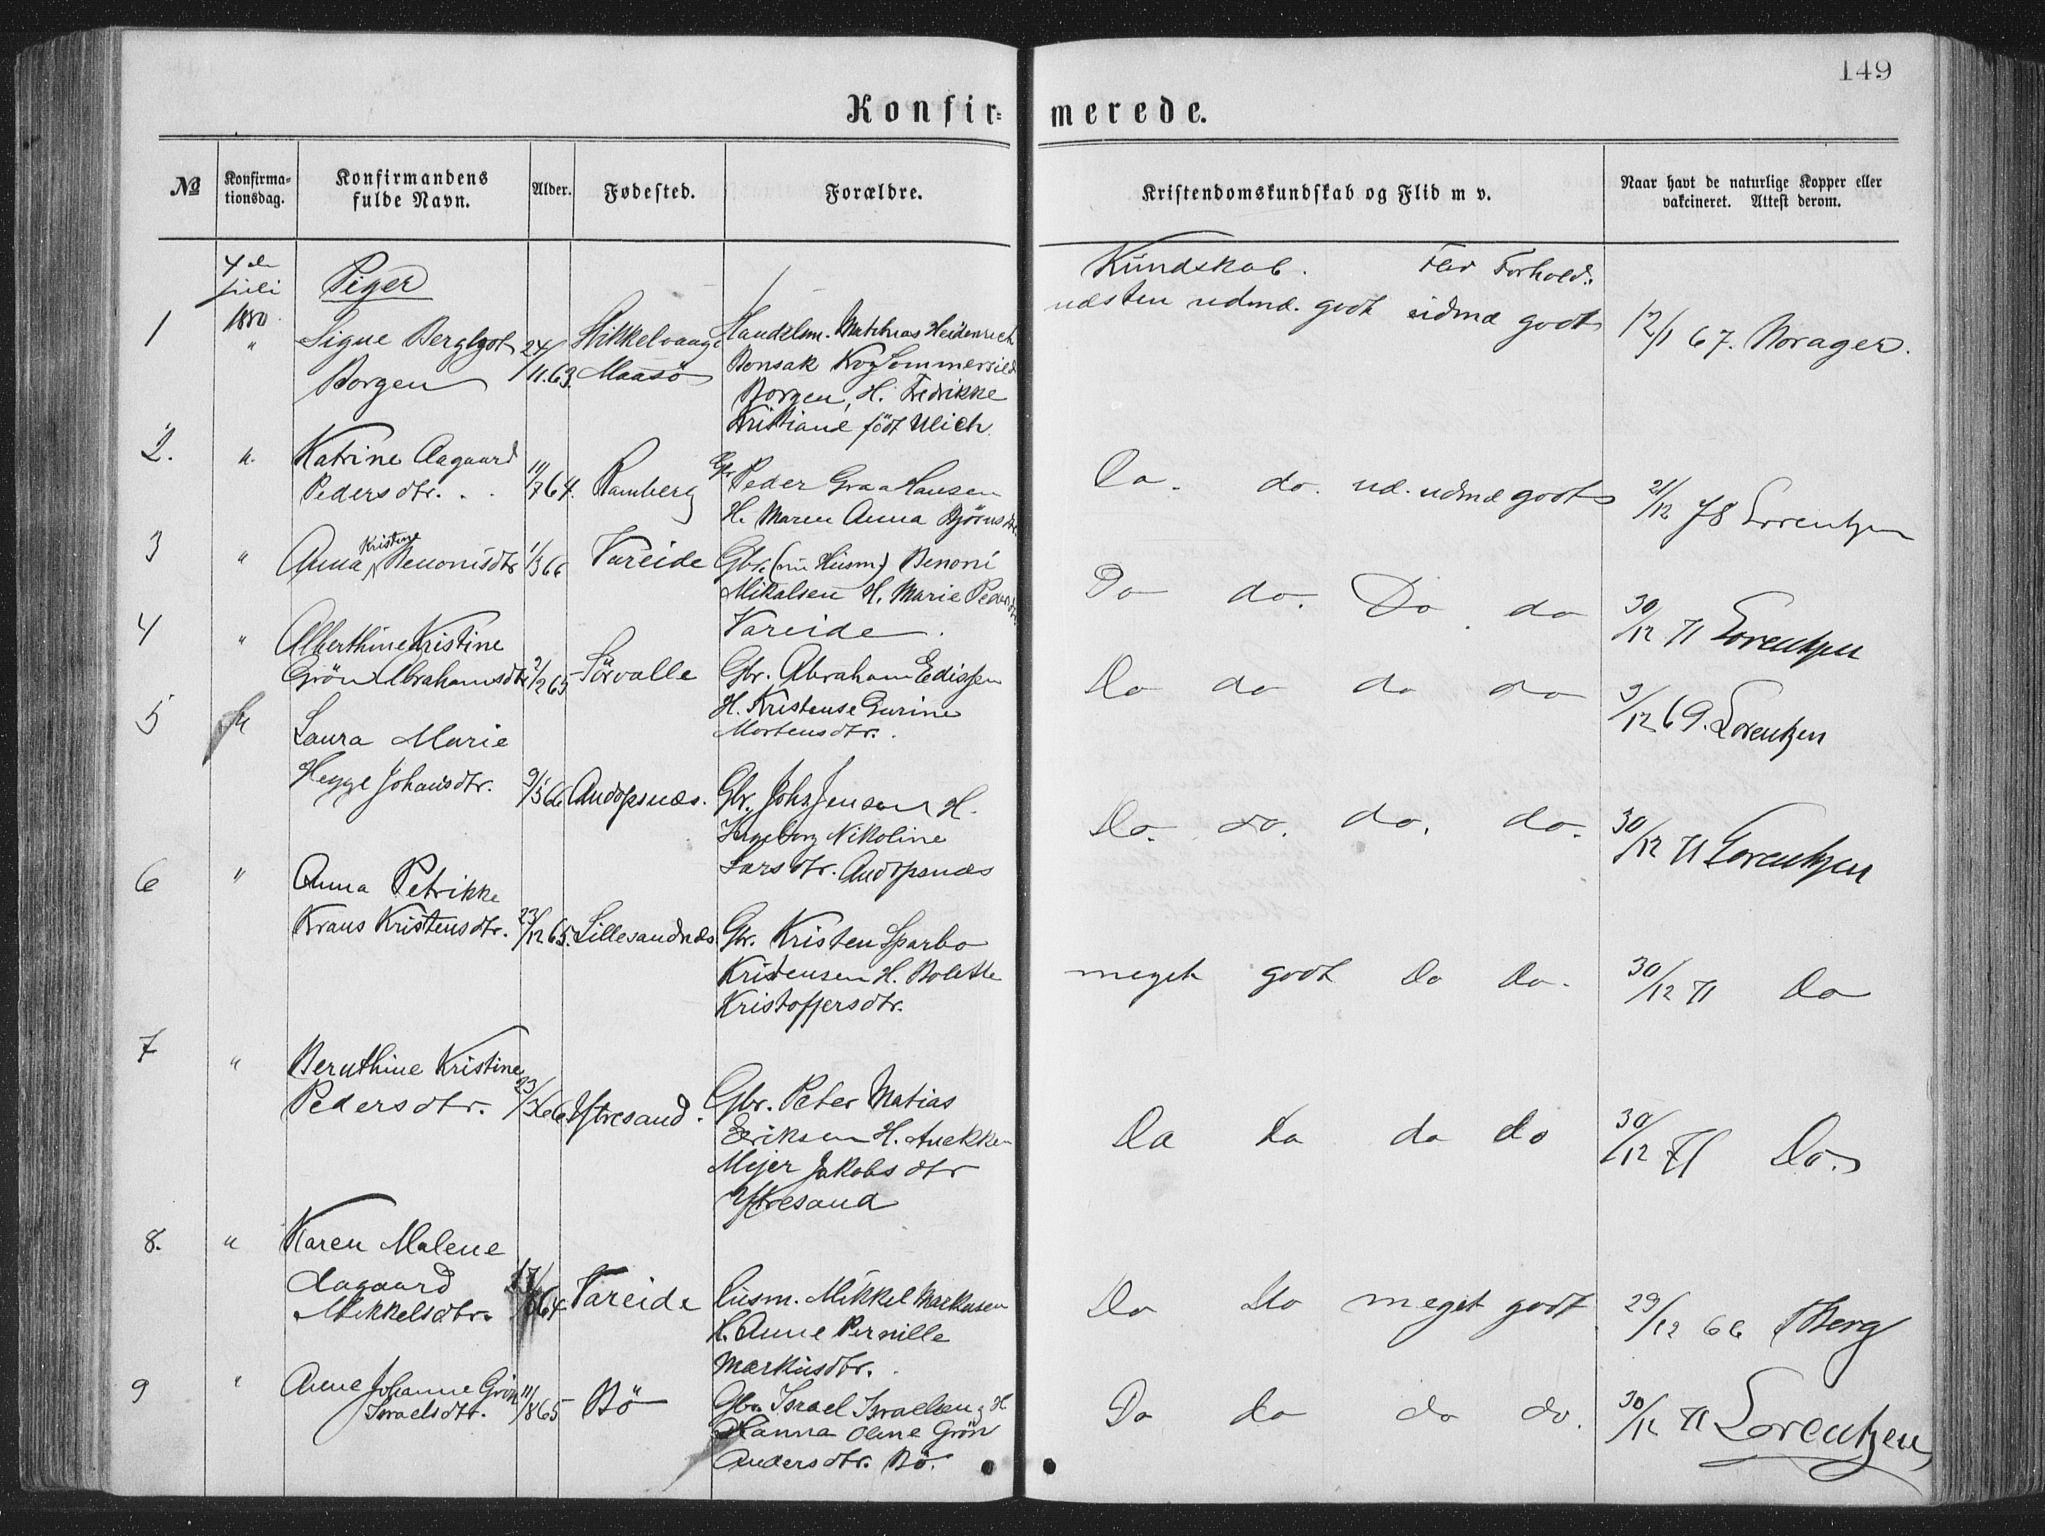 149
Konfir=
merede.
№
Konfirma-
tionsdag.
Konfirmandens
fulde Navn.
Alder.
Fødested.
Forældre.
Kristendomskundskab og Flid m v.
Naar havt de naturlige Kopper eller
vakcineret. Attest derom.
4de
Juli
1880
Piger
Kundskab. Flid Forhold.
1 " Signe Bergljot 24/11.63. Stikkelvaag Handelsm. Mathias Heidenreich
Borgen Maasö Bonsak Kog Sommersild
Borgen, H. Fredrikke
Kristiane födt Ulich.
næsten udmæ. godt udmæ godt 12/1 67. Norager.
2. " Katrine Aagaard 11/7 64. Ramberg Gbr. Peder Graa Hansen
Pedersdtr. H. Maren Anna Björnsdtr.
Do. do. ud. udmæ godt 21/12 78 Lorentzen
3 " Anna Kristine Benonisdtr 1/3 66 Vareide Gbr. (nu Husm.) Benoni
Mikalsen H. Marie Pedersdtr.
Vareide.
Do do. Do do 30/12 71 Lorentzen
4 " Alberthine Kristine
Grön Abrahamsdtr 2/2 65 Sörvalle Gbr. Abraham Edissen
H. Kristense Gurine
Mortensdtr.
Do do do do 9/12 69. Lorentzen
5 " Laura Marie
Hegge Johansdtr. 9/5 66 Andopsnæs. Gbr. Joh. Jensen H.
Ingeborg Nikoline
Larsdtr. Andopsnæs
Do. do. do. do. 30/12 71 Lorentzen
6 " Anna Petrikke
Kraus Kristensdtr. 23/12 65. Lillesandnæs. Gbr. Kristen Sparbo
Kristensen H. Bolette
Kristoffersdtr.
meget godt Do Do. 30/12 71 Do
7 " Beruthine Kristine
Pedersdtr. 23/3 66 Ytresand. Gbr. Peter Matias
Eriksen H. Anekken
Mejer Jakobsdtr
Ytresand
Do do do do 30/12 71 Do.
8. " Karen Malene
Aagaard
Mikkelsdtr. 64 Vareide Husm. Mikkel Markusen
H. Anne Pernille
Markusdtr.
Do do meget godt 29/12 66 Berg
9 " Anne Johanne Grön
Israelsdtr. 11/8 65 Bö Gbr. Israel Israelsen, H
Hanna Oline Grön
Andersdtr. Bö.
Do do do do. 30/12 71 Lorentzen